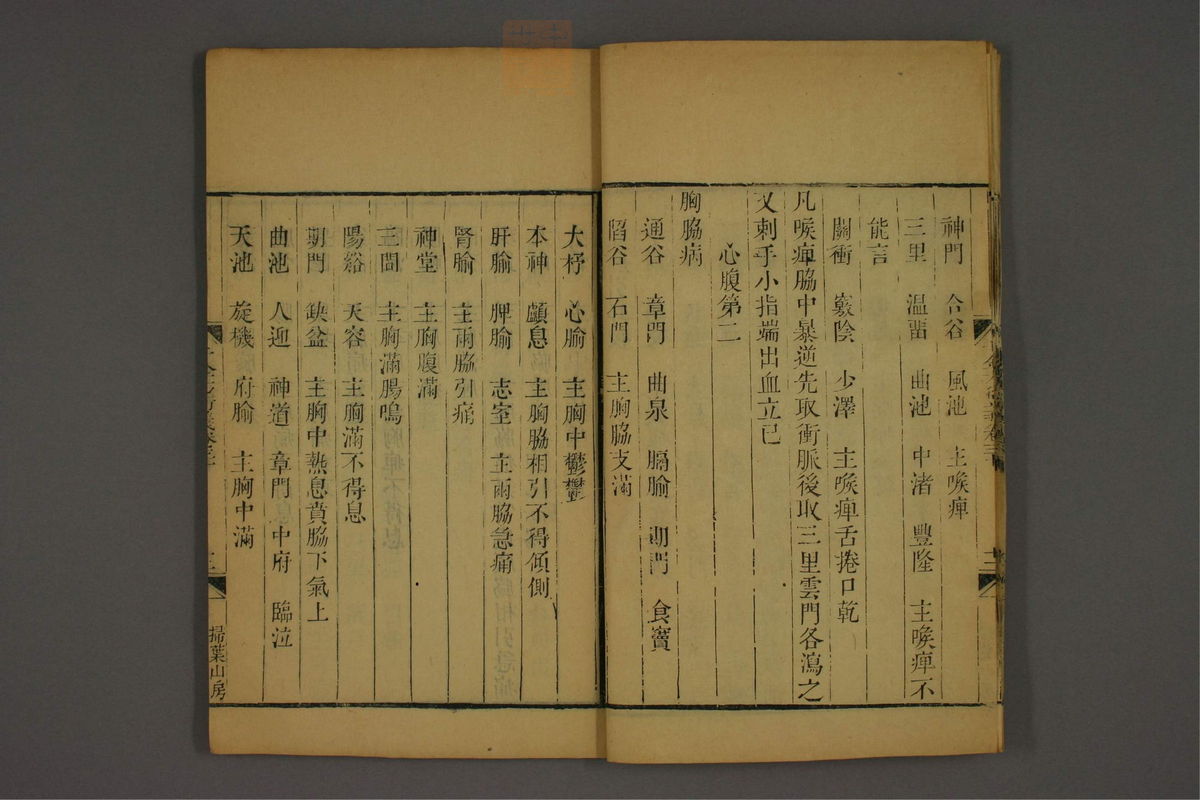 神門　合谷　風池　主喉痺
三里　温畱　曲池　中渚　豐隆　主喉痺不
能言
關衝　竅陰　少澤　主喉痺舌捲口乾
凡喉痺脇中暴逆先取衝脈後取三里雲門各瀉之
又刺手小指端出血立已
心腹第二
胸脇病
通谷　章門　曲泉　膈腧　期門　食竇
陷谷　石門　主胸脇支滿
大杼　心腧　主胸中鬱鬱
本神　顱息　主胸脇相引不得傾側
肝腧　脾腧　志室　主兩脇急痛
腎腧　主兩脇引痛
神堂　主胸腹滿
三間　主胸滿腸鳴
陽谿　天容　主胸滿不得息
期門　缺盆　主胸中熱息賁脇下氣上
曲池　人迎　神道　章門　中府　臨泣
天池　旋機　府腧　主胸中滿
掃葉山房